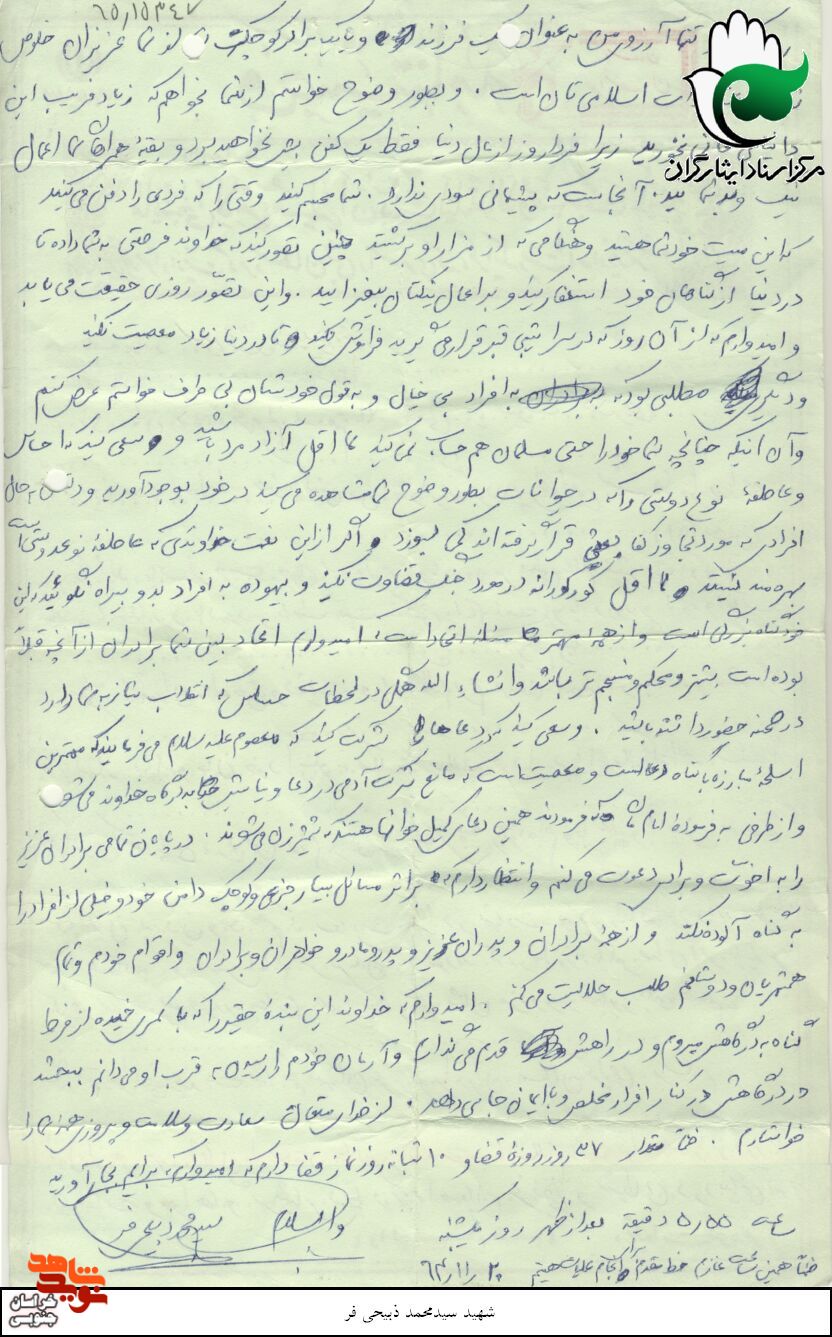 ۶۵/۱۵۳۴۷
تنها آرزوی من به عنوان یک فرزند و یا یک برادر کوچک از شما عزیزان خلوص
اسلامی تان است. و بطور وضوح خواستم از شما بخواهم که زیاد فریب این
فانی نخورید زیرا فردا روز از مال دنیا فقط یک کفن بیش نخواهید برد و بقیه همراه شما اعمال
نیک و بد شماست. آنجاست که پشیمانی سودی ندارد. شما مجسم کنید وقتی را که فردی را دفن می‌کنید
که این میت خود شما هستید و هنگامی که از مزار او برگشتید چنین تصور کنید که خداوند فرصتی به شما داده تا
در دنیا از گناهان خود استغفار کنید و بر اعمال نیکتان بیفزایید. و این تصوّر روزی حقیقت می‌یابد
و امیدوارم که از آن روز که در سراشیبی قبر قرار می‌گیرید فراموش نکنید تا در دنیا زیاد معصیت نکنید
و دیگر مطلبی بود که به افراد بی خیال و به قول خودشان بی طرف خواستم عرض کنم
و آن اینکه چنانچه شما خود را حتی مسلمان هم حساب نمی‌کنید لااقل آزاد مرد باشید و سعی کنید که احساس
و عاطفهٔ نوع دوستی را که در حیوانات بطور وضوح مشاهده می‌کنید در خود بوجود آورید و دلتان به حال
افرادی که مورد تجاوز کفار بعثی قرار گرفته‌اند کمی بسوزد و اگر از این نعمت خداوندی که عاطفهٔ نوعدوستی است
بهره‌مند نیستید لااقل کورکورانه در مورد جنگ قضاوت نکنید و بیهوده به افراد بد و بیراه نگوئید که این
خود گناه بزرگی است و از همه مهمتر مسئله اتحاد است، امیدوارم اتحاد بین شما برادران از آنچه قبلاً
بوده است بیشتر و محکم و منسجم تر باشد و انشاء الله همگی در لحظات حساس که انقلاب نیاز به شما دارد
در صحنه حضور داشته باشید. و سعی کنید که در دعاها شرکت کنید که معصوم علیه سلام می‌فرمایند که مهمترین
اسلحهٔ مبارزه با گناه دعاست و معصیت است که مانع شرکت آدمی در دعا و نیایش به درگاه خداوند می‌شود
و از طرفی به فرمودهٔ امام مان که فرمودند همین دعای کمیل خوانها هستند که شمشیرزن می‌شوند. در پایان تمامی برادران عزیز
را به اخوت و برادری دعوت می‌کنم و انتظار دارم که بر اثر مسائل بسیار جزیی و کوچک دامن خود و خیلی از افراد را
به گناه آلوده نکنند و از همهٔ برادران و پدران عزیز و پدر و مادر و خواهران و برادران و اقوام خودم و تمام
همشهریان و دوستانم طلب حلالیت می‌کنم. امیدوارم که خداوند این بندهٔ حقیر را که با کمری خمیده از فرط
گناه به درگاهش میروم و در راهش قدم می‌گذارم و آرمان خودم را رسیدن به قرب او می‌دانم ببخشد
و در درگاهش در کنار افراد مخلص و با ایمان جا بدهد. از خدای متعال سعادت و سلامت و پیروزی همهٔ شما را
خواستارم. ضمناً مقدار ۳۷ روز روزهٔ قضا و ۱۰ شبانه روز نماز قضا دارم که امیدوارم برایم بجا آورید
ساعت ۵/۵۵ دقیقه بعدازظهر روز یکشنبه
والسلام سیدمحمد ذبیحی فر
ضمناً همین ساعت عازم خط مقدم انجام عملیات هستیم ۶۴/۱۱/۲۰
مرکز اسناد ایثارگران
نوید شاهد
خراسان جنوبی
شهید سیدمحمد ذبیحی فر